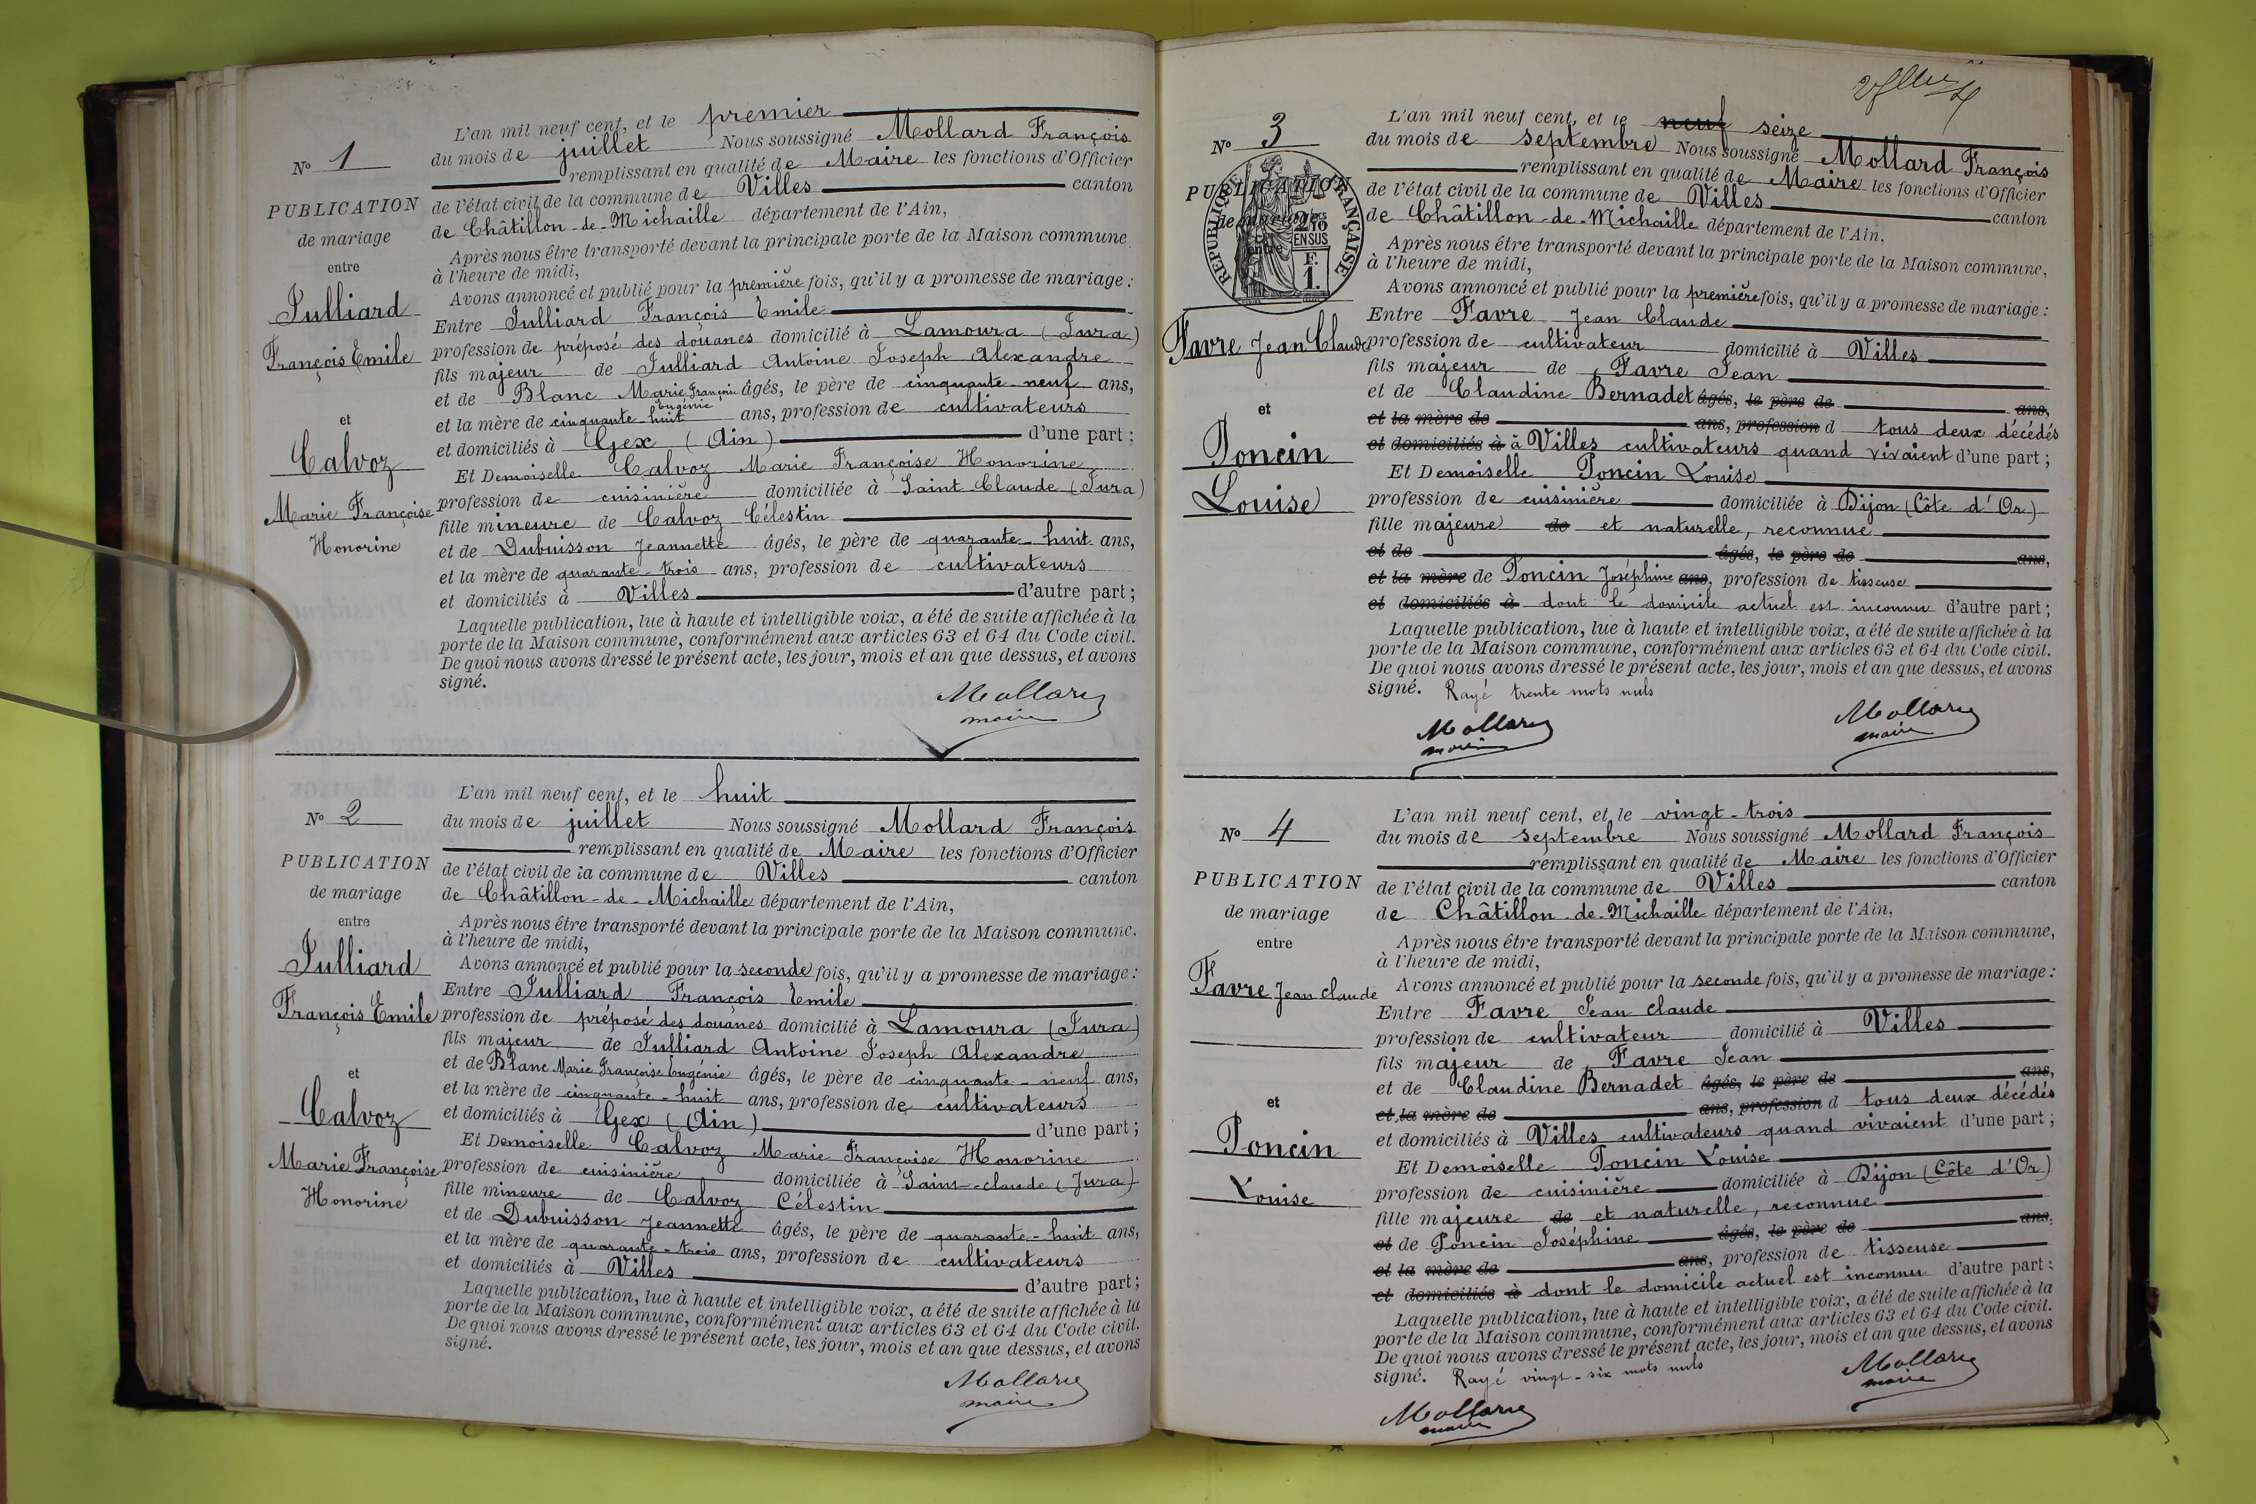 L'an mil neuf cent, et le premier
N° 1
du mois de juillet Nous soussigné Mollard François
remplissant en qualité de Maire les fonctions d'Officier
PUBLICATION
de l'état civil de la commune de Villes canton
de mariage
de Châtillon-de-Michaille département de l'Ain,
entre
Après nous être transporté devant la principale porte de la Maison commune
à l'heure de midi,
Avons annoncé et publié pour la première fois, qu'il y a promesse de mariage :
Julliard
Entre Julliard François Emile
François Emile
profession de préposé des douanes domicilié à Lamoura (Jura)
fils majeur de Julliard Antoine Joseph Alexandre
et de Blanc Marie Françoise Eugénie âgés, le père de cinquante-neuf ans,
et
et la mère de cinquante-huit ans, profession de cultivateurs
et domiciliés à Gex (Ain) d'une part ;
Calvoz
Et Demoiselle Calvoz Marie Françoise Honorine
Marie Françoise
profession de cuisinière domiciliée à Saint Claude (Jura)
fille mineure de Calvoz Célestin
Honorine
et de Dubuisson Jeannette âgés, le père de quarante-huit ans,
et la mère de quarante-trois ans, profession de cultivateurs
et domiciliés à Villes d'autre part ;
Laquelle publication, lue à haute et intelligible voix, a été de suite affichée à la
porte de la Maison commune, conformément aux articles 63 et 64 du Code civil.
De quoi nous avons dressé le présent acte, les jour, mois et an que dessus, et avons
signé.
Mollard
maire
L'an mil neuf cent, et le huit
N° 2
du mois de juillet Nous soussigné Mollard François
remplissant en qualité de Maire les fonctions d'Officier
PUBLICATION
de l'état civil de la commune de Villes canton
de mariage
de Châtillon-de-Michaille département de l'Ain,
entre
Après nous être transporté devant la principale porte de la Maison commune.
à l'heure de midi,
Julliard
Avons annoncé et publié pour la seconde fois, qu'il y a promesse de mariage :
Entre Julliard François Emile
François Emile
profession de préposé des douanes domicilié à Lamoura (Jura)
fils majeur de Julliard Antoine Joseph Alexandre
et de Blanc Marie Françoise Eugénie âgés, le père de cinquante-neuf ans,
et
et la mère de cinquante-huit ans, profession de cultivateurs
et domiciliés à Gex (Ain) d'une part ;
Calvoz
Et Demoiselle Calvoz Marie Françoise Honorine
Marie Françoise
profession de cuisinière domiciliée à Saint-Claude (Jura)
fille mineure de Calvoz Célestin
Honorine
et de Dubuisson Jeannette âgés, le père de quarante-huit ans,
et la mère de quarante-trois ans, profession de cultivateurs
et domiciliés à Villes d'autre part ;
Laquelle publication, lue à haute et intelligible voix, a été de suite affichée à la
porte de la Maison commune, conformément aux articles 63 et 64 du Code civil.
De quoi nous avons dressé le présent acte, les jour, mois et an que dessus, et avons
signé.
Mollard
maire
L'an mil neuf cent, et le neuf seize
N° 3
du mois de septembre Nous soussigné Mollard François
remplissant en qualité de Maire les fonctions d'Officier
PUBLICATION
de mariage
entre
RÉPUBLIQUE FRANÇAISE
2/10 EN SUS
F. 1.
de l'état civil de la commune de Villes canton
de Châtillon-de-Michaille département de l'Ain,
Après nous être transporté devant la principale porte de la Maison commune,
à l'heure de midi,
Avons annoncé et publié pour la première fois, qu'il y a promesse de mariage :
Entre Favre Jean Claude
Favre Jean Claude
profession de cultivateur domicilié à Villes
fils majeur de Favre Jean
et de Claudine Bernadet âgés, le père de ans,
et
et la mère de ans, profession d tous deux décédés
et domiciliés à à Villes cultivateurs quand vivaient d'une part ;
Poncin
Et Demoiselle Poncin Louise
Louise
profession de cuisinière domiciliée à Dijon (Côte d'Or)
fille majeure de et naturelle, reconnue
et de âgés, le père de ans,
et la mère de Poncin Joséphine ans, profession de tisseuse
et domiciliés à dont le domicile actuel est inconnu d'autre part ;
Laquelle publication, lue à haute et intelligible voix, a été de suite affichée à la
porte de la Maison commune, conformément aux articles 63 et 64 du Code civil.
De quoi nous avons dressé le présent acte, les jour, mois et an que dessus, et avons
signé. Rayé trente mots nuls
Mollard
maire
Mollard
maire
L'an mil neuf cent, et le vingt-trois
N° 4
du mois de septembre Nous soussigné Mollard François
remplissant en qualité de Maire les fonctions d'Officier
PUBLICATION
de l'état civil de la commune de Villes canton
de mariage
de Châtillon-de-Michaille département de l'Ain,
entre
Après nous être transporté devant la principale porte de la Maison commune,
à l'heure de midi,
Avons annoncé et publié pour la seconde fois, qu'il y a promesse de mariage :
Favre Jean Claude
Entre Favre Jean Claude
profession de cultivateur domicilié à Villes
fils majeur de Favre Jean
et de Claudine Bernadet âgés, le père de ans,
et
et la mère de ans, profession d tous deux décédés
et domiciliés à Villes cultivateurs quand vivaient d'une part ;
Poncin
Et Demoiselle Poncin Louise
Louise
profession de cuisinière domiciliée à Dijon (Côte d'Or)
fille majeure de et naturelle, reconnue
et de Poncin Joséphine âgés, le père de ans,
et la mère de ans, profession de tisseuse
et domiciliés à dont le domicile actuel est inconnu d'autre part ;
Laquelle publication, lue à haute et intelligible voix, a été de suite affichée à la
porte de la Maison commune, conformément aux articles 63 et 64 du Code civil.
De quoi nous avons dressé le présent acte, les jour, mois et an que dessus, et avons
signé. Rayé vingt-six mots nuls
Mollard
maire
Mollard
maire